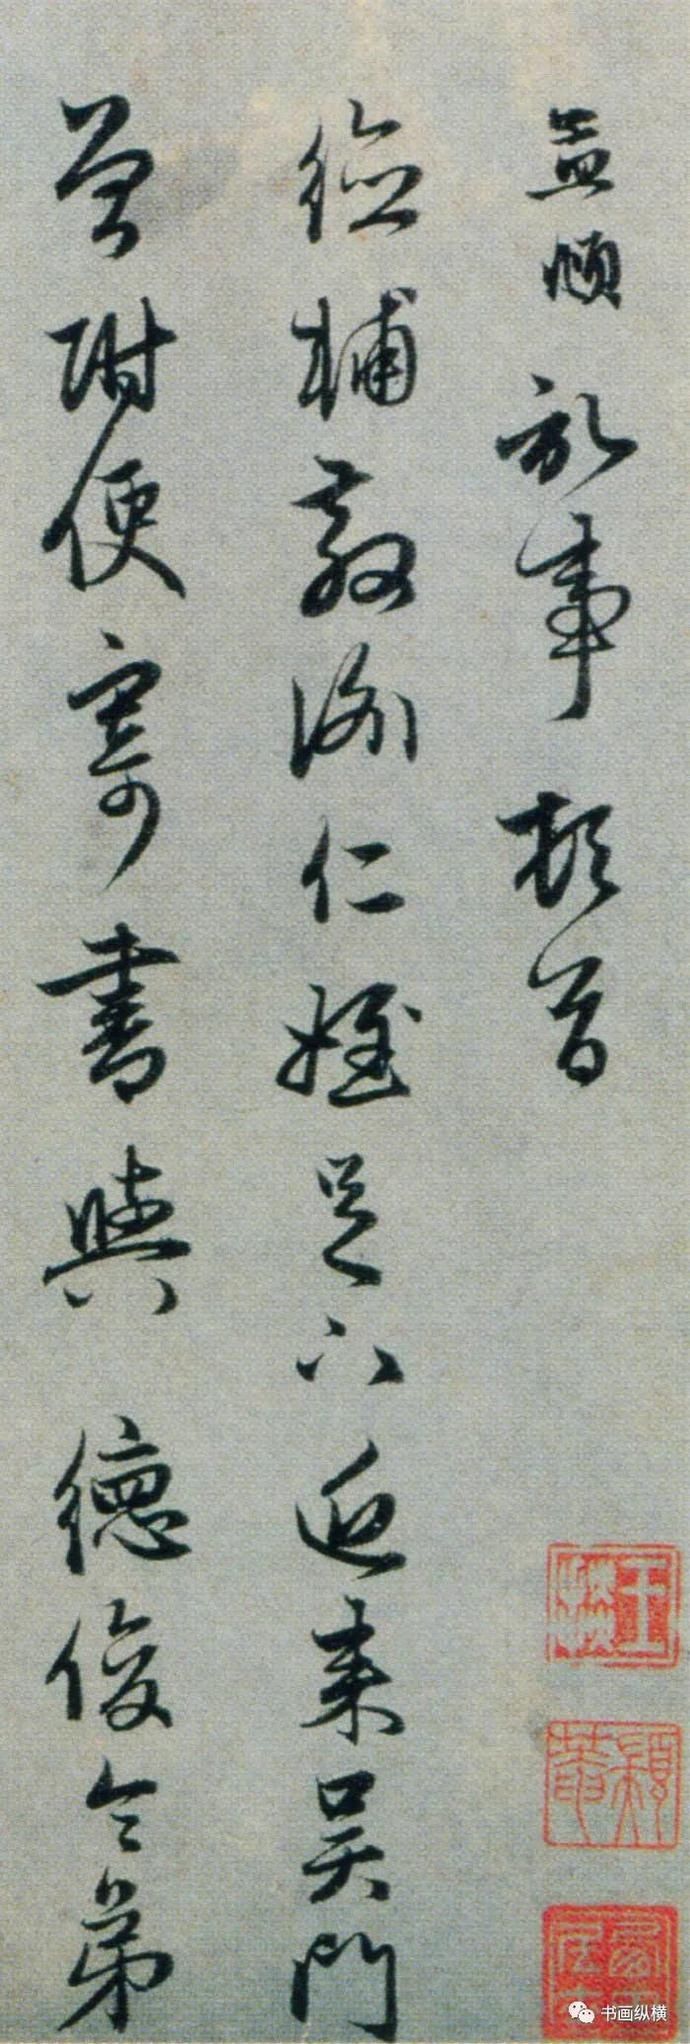 孟頫記事頓首
德輔教諭仁姪足下近來吳門
曾附便寄書與 德俊令弟
书画纵横